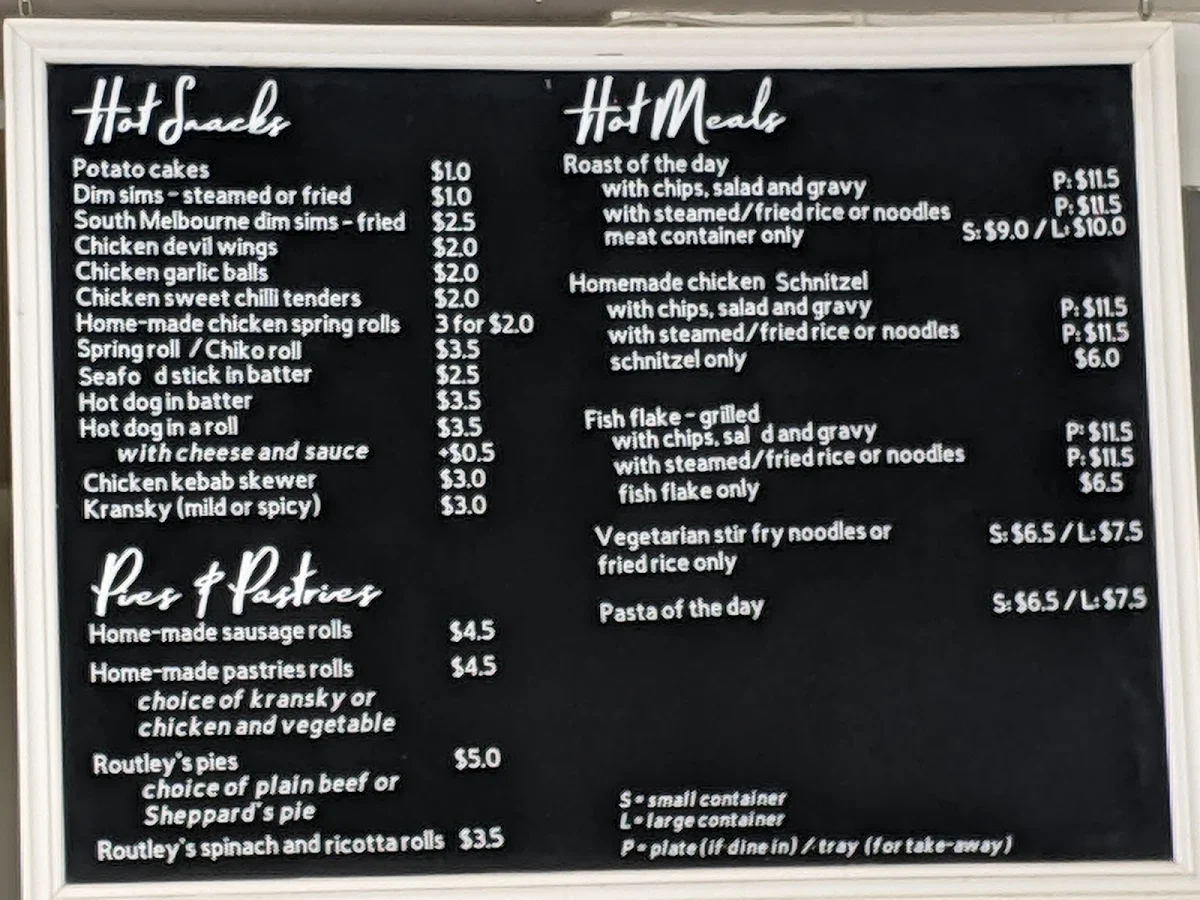 Hot Snacks
Potato cakes $1.0
Dim sims - steamed or fried $1.0
South Melbourne dim sims - fried $2.5
Chicken devil wings $2.0
Chicken garlic balls $2.0
Chicken sweet chilli tenders $2.0
Home-made chicken spring rolls 3 for $2.0
Spring roll / Chiko roll $3.5
Seafo d stick in batter $2.5
Hot dog in batter $3.5
Hot dog in a roll $3.5
with cheese and sauce +$0.5
Chicken kebab skewer $3.0
Kransky (mild or spicy) $3.0
Pies & Pastries
Home-made sausage rolls $4.5
Home-made pastries rolls $4.5
choice of kransky or
chicken and vegetable
Routley's pies $5.0
choice of plain beef or
Sheppard's pie
Routley's spinach and ricotta rolls $3.5
Hot Meals
Roast of the day
with chips, salad and gravy P: $11.5
with steamed/fried rice or noodles P: $11.5
meat container only S: $9.0 / L: $10.0
Homemade chicken Schnitzel
with chips, salad and gravy P: $11.5
with steamed/fried rice or noodles P: $11.5
schnitzel only $6.0
Fish flake - grilled
with chips, sal d and gravy P: $11.5
with steamed/fried rice or noodles P: $11.5
fish flake only $6.5
Vegetarian stir fry noodles or S: $6.5 / L: $7.5
fried rice only
Pasta of the day S: $6.5 / L: $7.5
S = small container
L = large container
P = plate (if dine in) / tray (for take-away)